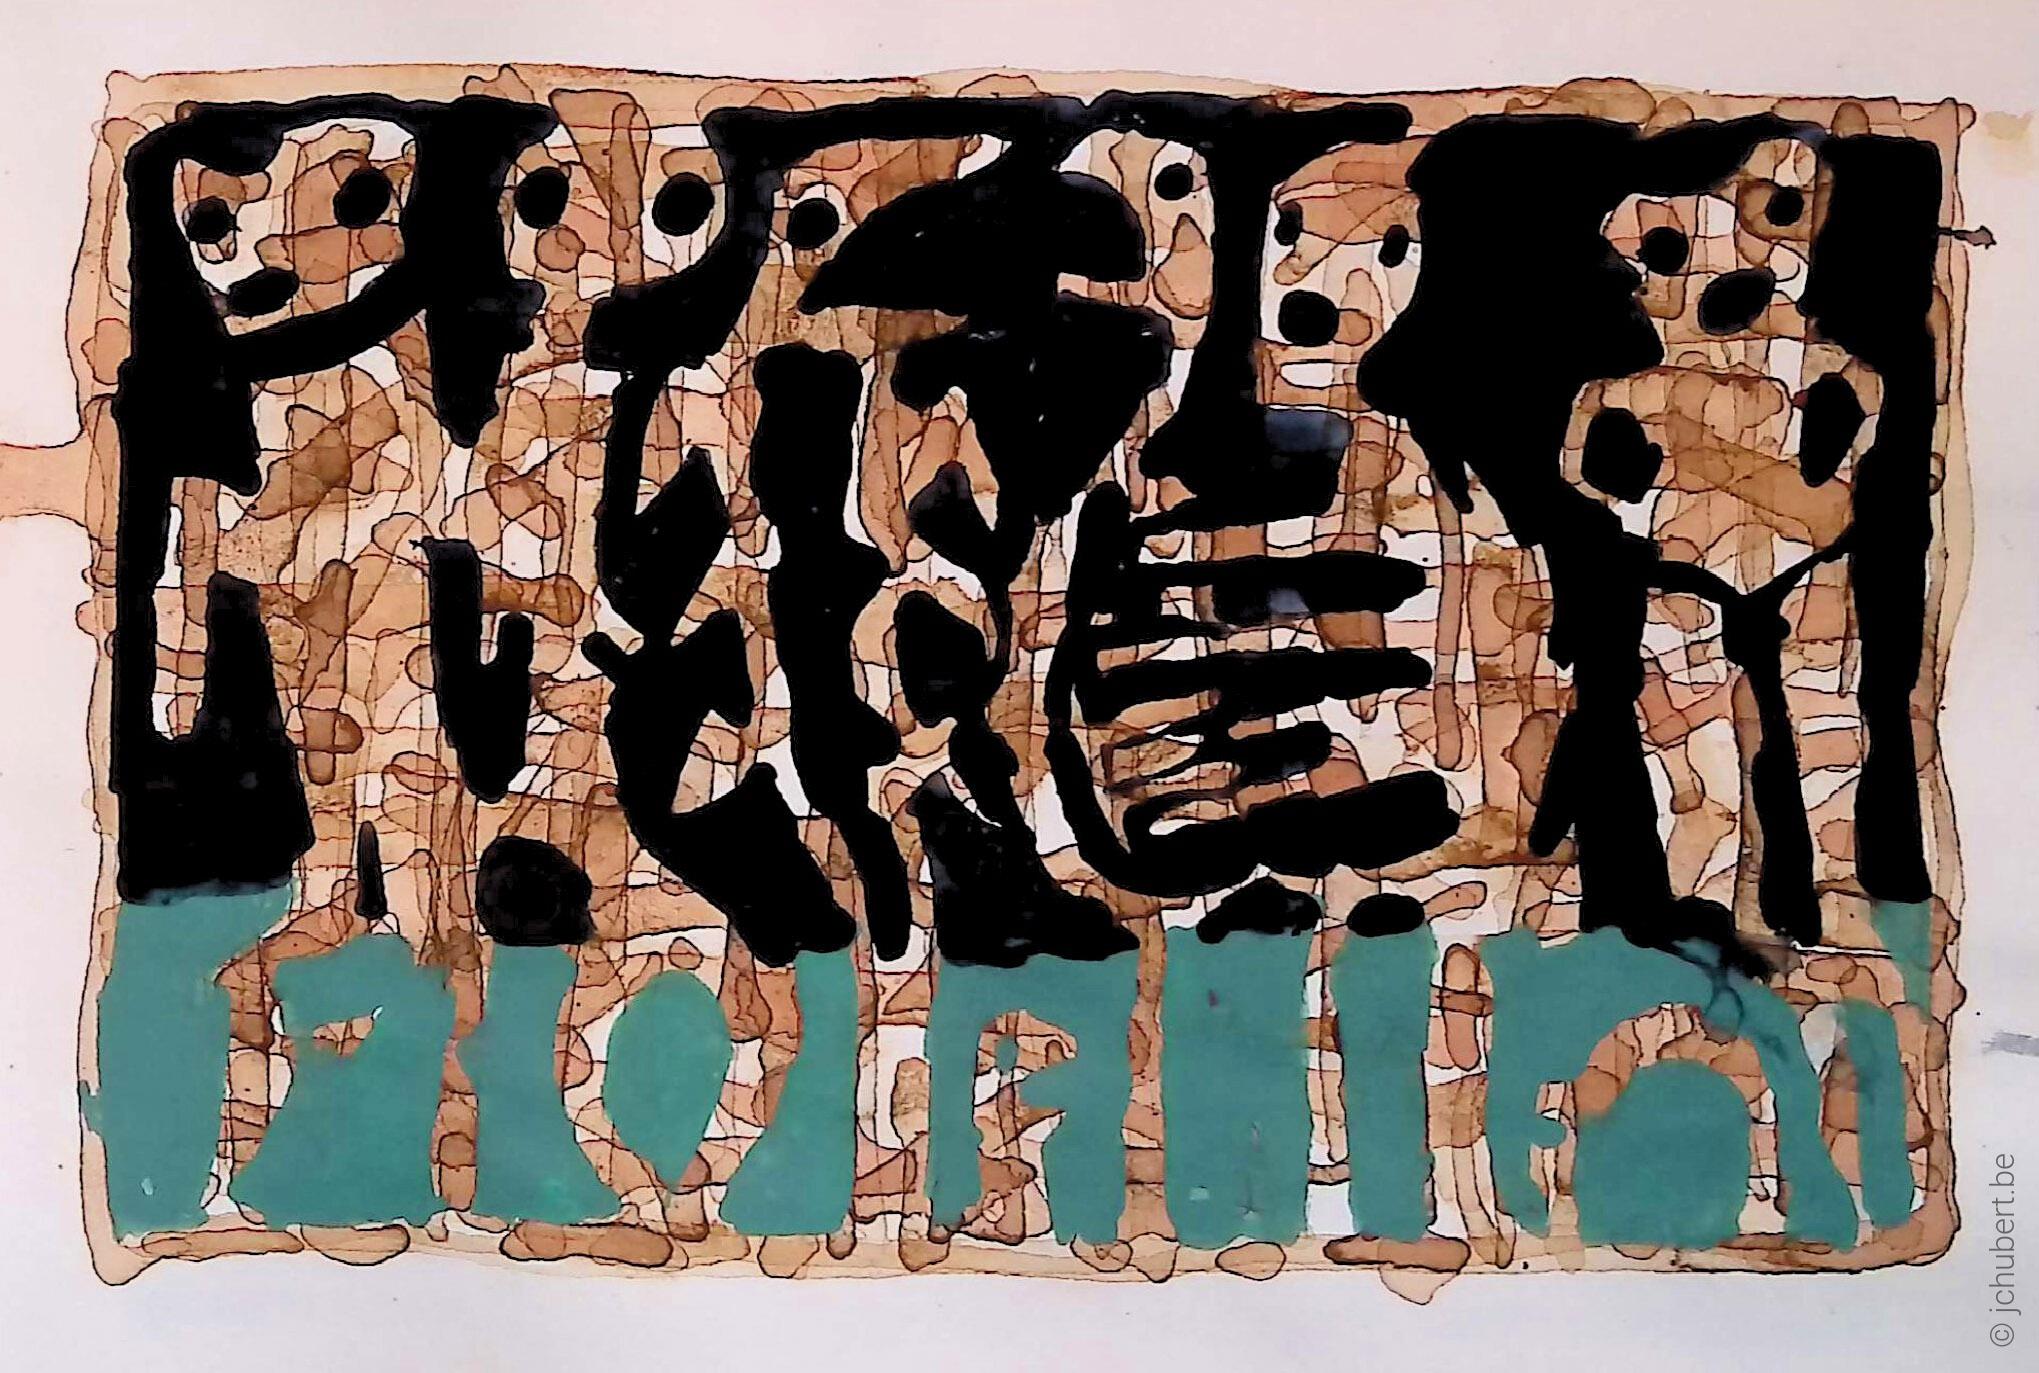 © jchubert.be